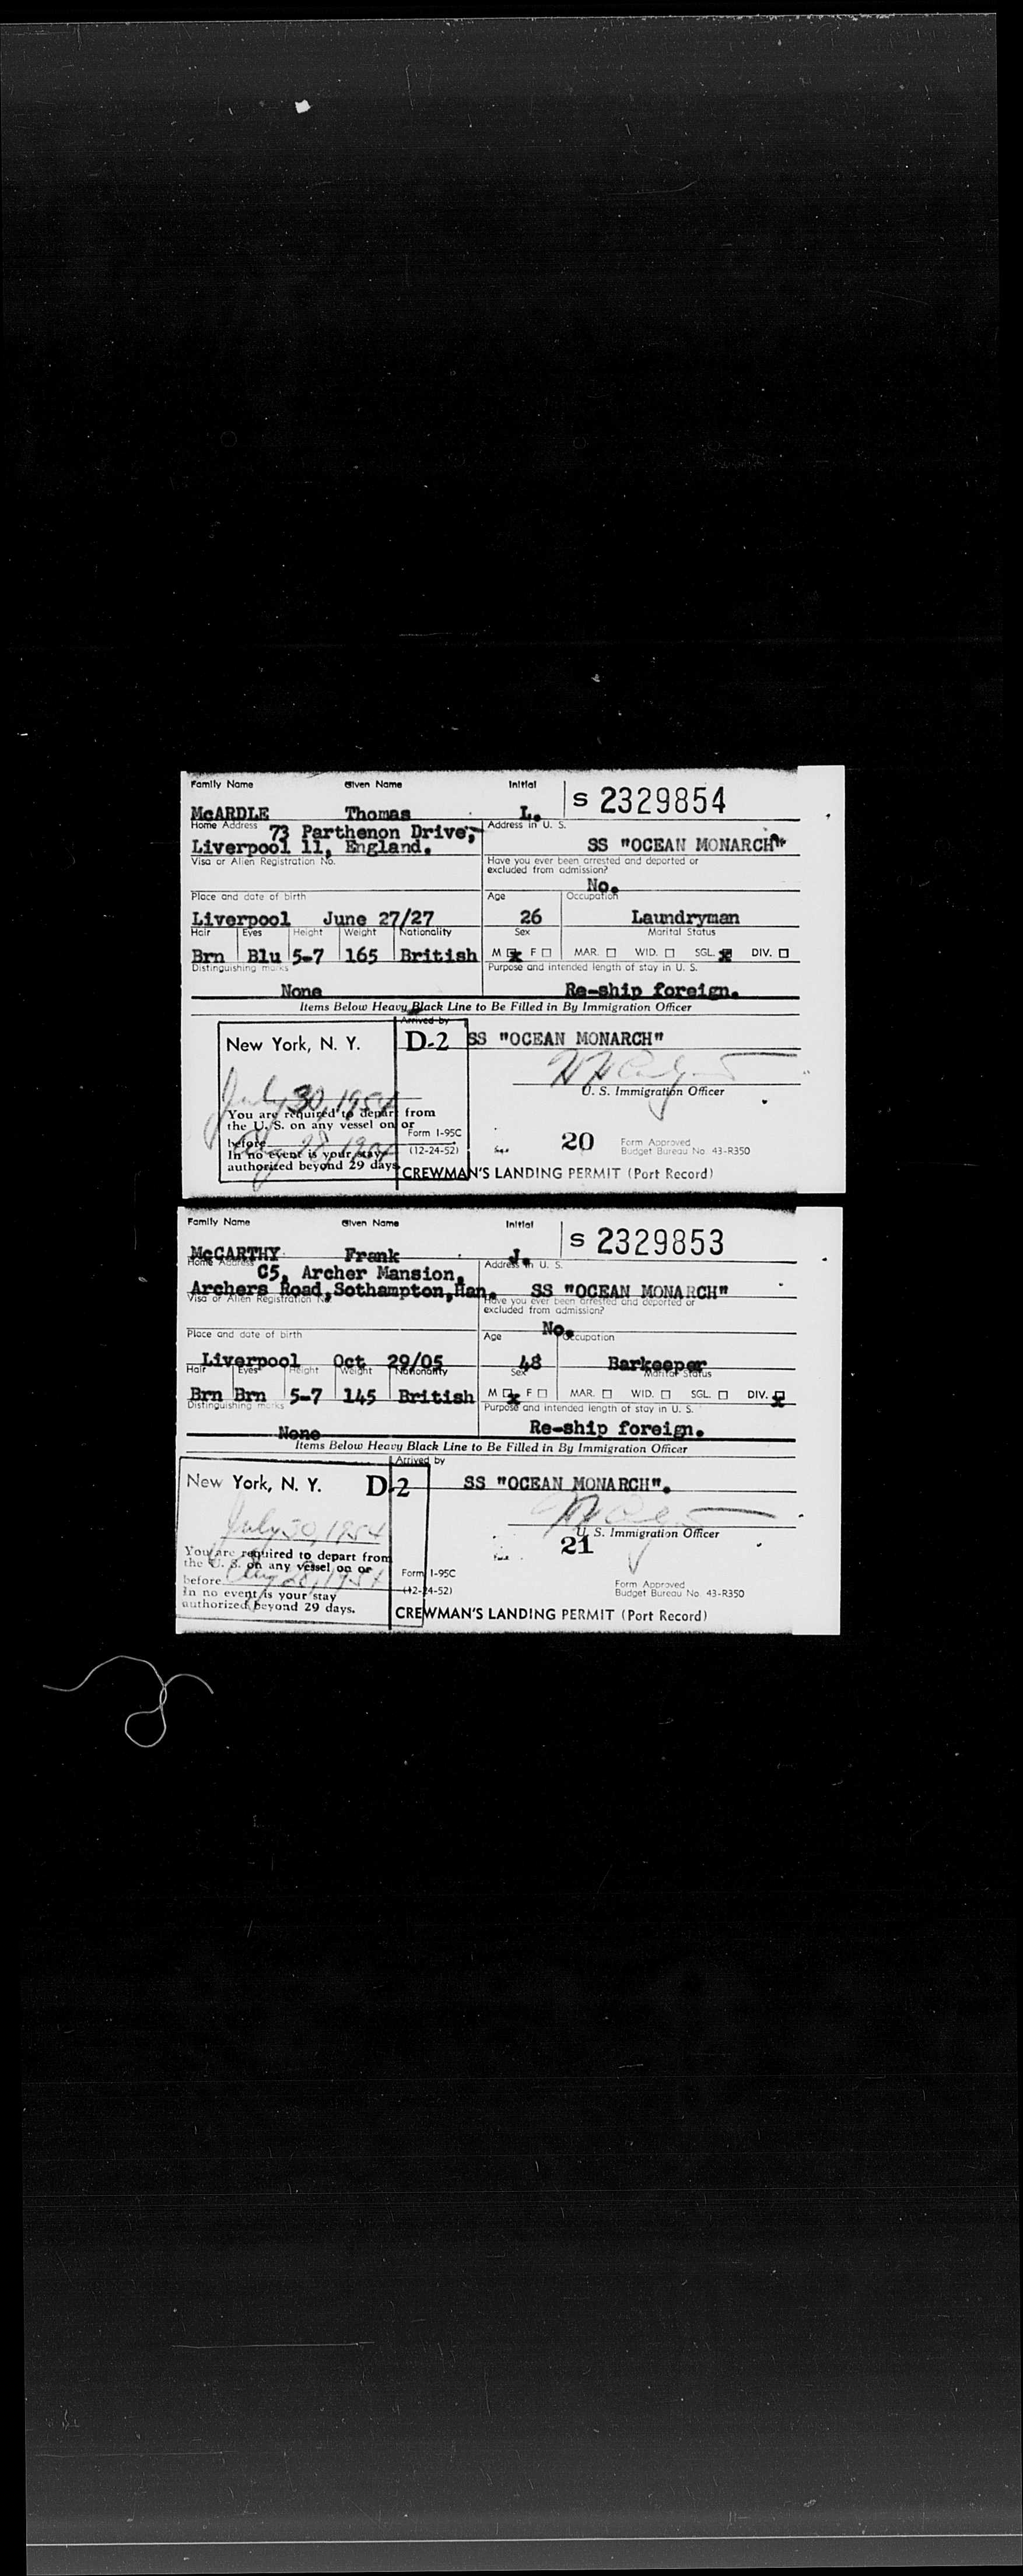 Family Name Given Name Initial
S 2329854
McARDLE Thomas L.
Home Address 73 Parthenon Drive,
Address in U. S.
Liverpool 11, England.
SS "OCEAN MONARCH"
Visa or Alien Registration No.
Have you ever been arrested and deported or
excluded from admission?
No.
Place and date of birth
Age Occupation
Liverpool June 27/27
26 Laundryman
Hair Eyes Height Weight Nationality
Sex Marital Status
Brn Blu 5-7 165 British
M x F MAR. WID. SGL. x DIV.
Distinguishing marks
Purpose and intended length of stay in U. S.
None
Re-ship foreign.
Items Below Heavy Black Line to Be Filled in By Immigration Officer
Arrived by
New York, N. Y. D-2 SS "OCEAN MONARCH"
U. S. Immigration Officer
July 30, 1954
You are required to depart from
the U. S. on any vessel on or
before Aug 28, 1954
In no event is your stay
authorized beyond 29 days.
Form I-95C
(12-24-52)
20
Form Approved
Budget Bureau No. 43-R350
CREWMAN'S LANDING PERMIT (Port Record)
Family Name Given Name Initial
S 2329853
McCARTHY Frank J.
Home Address C5, Archer Mansion,
Address in U. S.
Archers Road, Sothampton, Han.
SS "OCEAN MONARCH"
Visa or Alien Registration No.
Have you ever been arrested and deported or
excluded from admission?
No.
Place and date of birth
Age Occupation
Liverpool Oct 29/05
48 Barkeeper
Hair Eyes Height Weight Nationality
Sex Marital Status
Brn Brn 5-7 145 British
M x F MAR. WID. SGL. DIV. x
Distinguishing marks
Purpose and intended length of stay in U. S.
None
Re-ship foreign.
Items Below Heavy Black Line to Be Filled in By Immigration Officer
Arrived by
New York, N. Y. D-2 SS "OCEAN MONARCH".
U. S. Immigration Officer
July 30, 1954
21
You are required to depart from
the U. S. on any vessel on or
before Aug 28, 1954
In no event is your stay
authorized beyond 29 days.
Form I-95C
(12-24-52)
Form Approved
Budget Bureau No. 43-R350
CREWMAN'S LANDING PERMIT (Port Record)